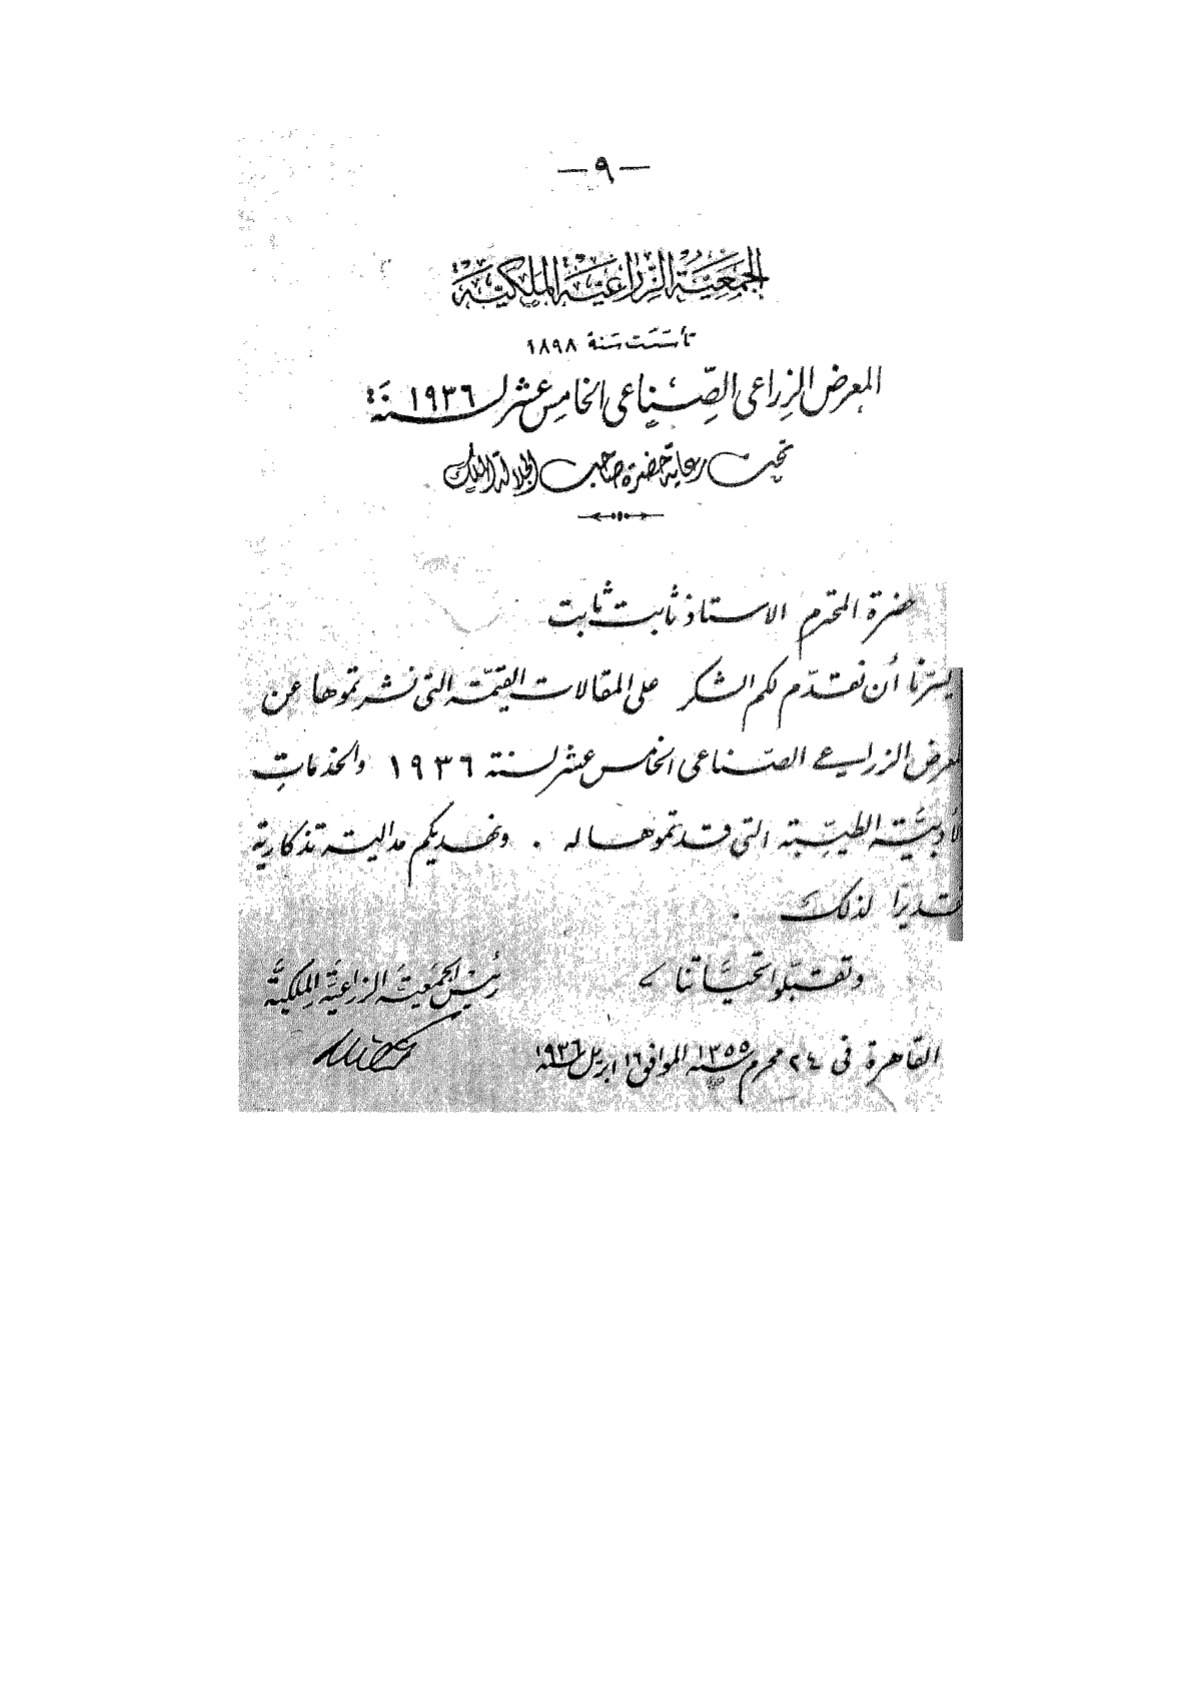 — ٩ —
الجمعية الزراعية الملكية
تأسست سنة ١٨٩٨
المعرض الزراعى الصناعى الخامس عشر لسنة ١٩٣٦
تحت رعاية حضرة صاحب الجلالة الملك
حضرة المحترم الاستاذ ثابت ثابت
يسرّنا أن نقدّم لكم الشكر على المقالات القيّمة التى نشرتموها عن
المعرض الزراعى الصّناعى الخامس عشر لسنة ١٩٣٦ والخدمات
الأدبيّة الطيّبة التى قدتموها له . ونهديكم مدالية تذكارية
تقديرًا لذلك .
وتقبّلوا تحيّاتنا
رئيس الجمعيّة الزراعيّة الملكيّة
القاهرة فى ٢٤ محرم سنة ١٣٥٥ الموافق ١٦ ابريل سنة ١٩٣٦